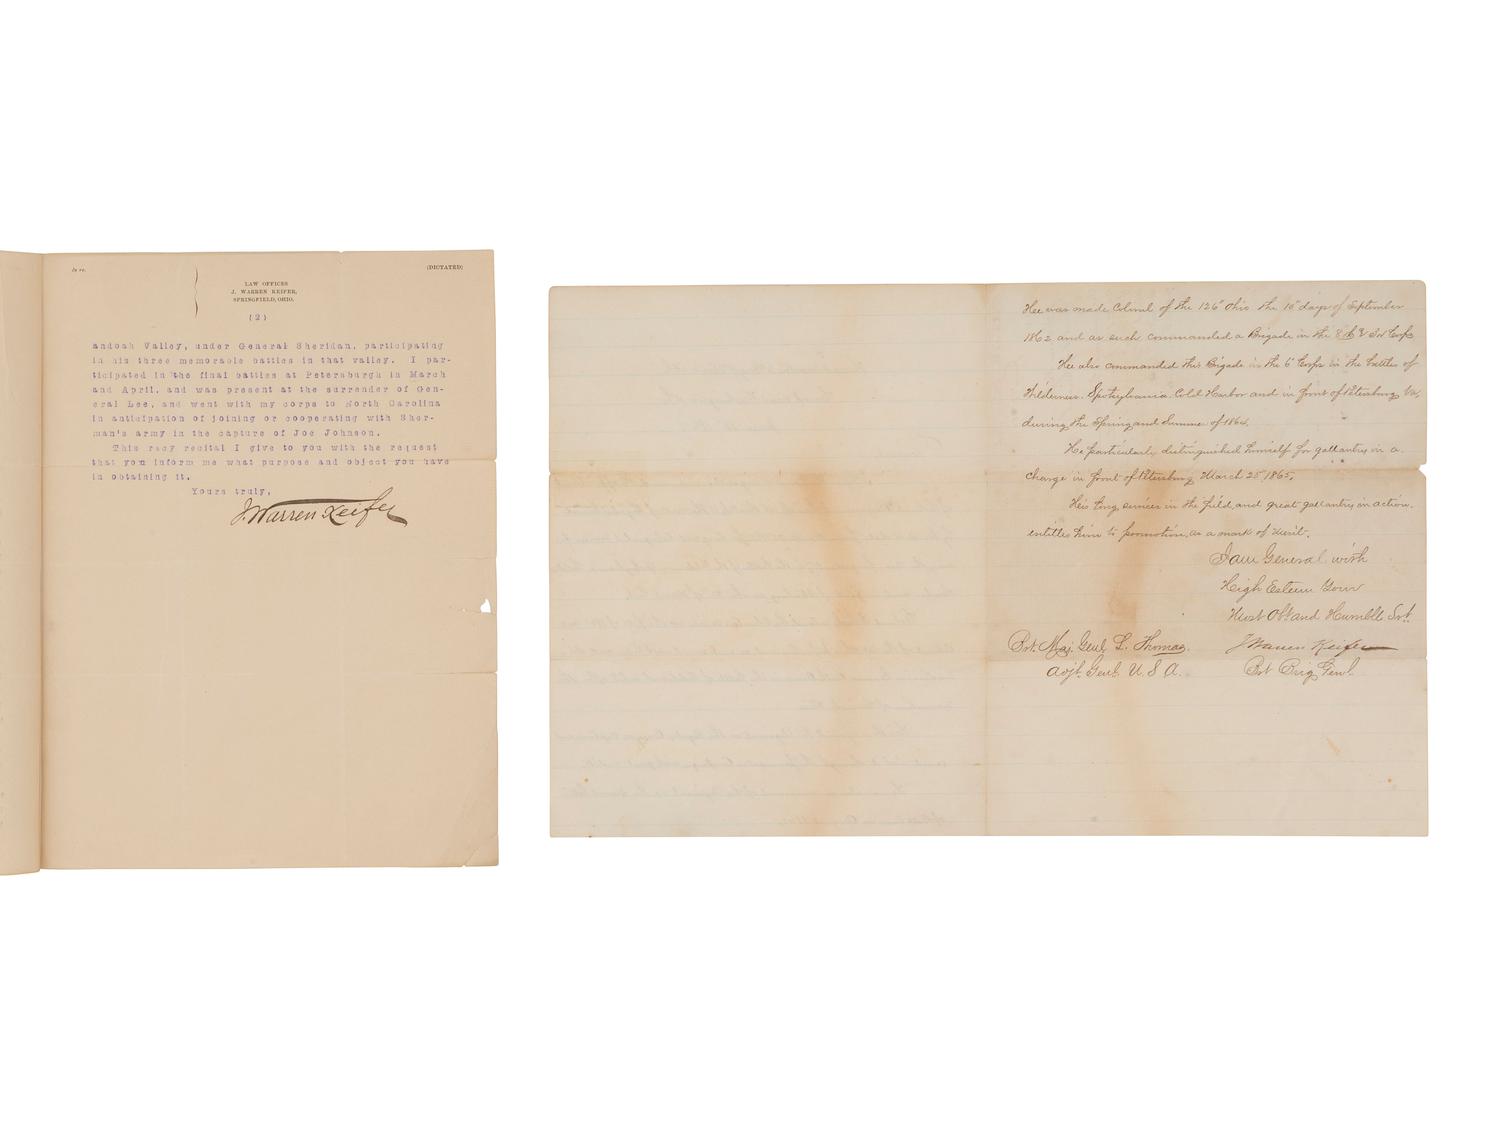 In re.
(DICTATED)
LAW OFFICES
J. WARREN KEIFER,
SPRINGFIELD, OHIO.
(2)
andoah Valley, under General Sheridan, participating
in his three memorable battles in that valley. I par-
ticipated in the final battles at Petersburgh in March
and April, and was present at the surrender of Gen-
eral Lee, and went with my corps to North Carolina
in anticipation of joining or cooperating with Sher-
man's army in the capture of Joe Johnson.
This racy recital I give to you with the request
that you inform me what purpose and object you have
in obtaining it.
Yours truly,
J. Warren Keifer
He was made Colonel of the 126" Ohio the 10" days of September
1862 and as such commanded a Brigade in the 8th & 3rd Corps
He also commanded this Brigade in the 6" Corps in the battles of
Wilderness. Spotsylvania. Cold Harbor and in front of Petersburg Va,
during the Spring and Summer of 1864.
He particularly distinguished himself for gallantry in a
charge in front of Petersburg March 25" 1865.
His long services in the field, and great gallantry in action,
entitles him to promotion, as a mark of Merit.
I am General with
High Esteem Your
Most Obt. and Humble Svt.
Bvt. Maj. Genl. L. Thomas.
J Warren Keifer
Adjt. Genl. U. S. A.
Bvt Brig Genl.